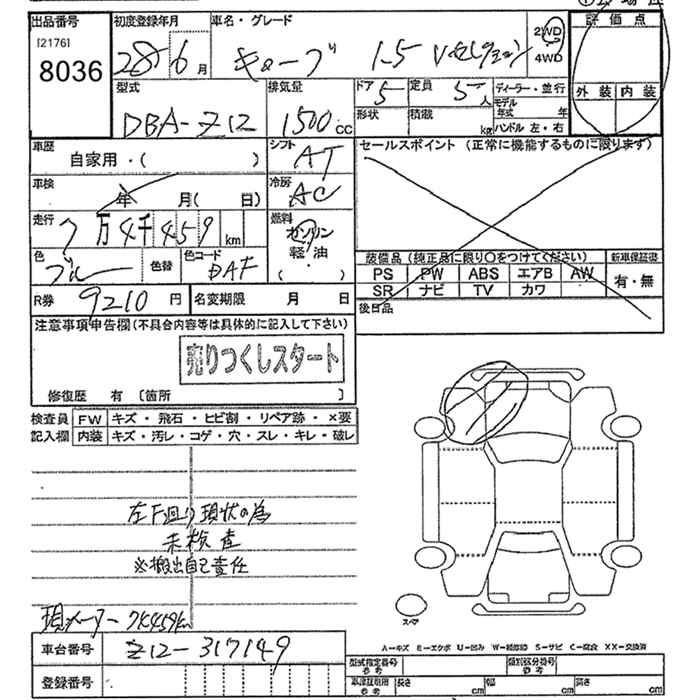 出品番号 初度登録年月 車名・グレード 2WD 評価点
[2176] 8036 28年 6月 キューブ 1.5 Vセレクション 4WD
型式 排気量 ドア 5 定員 5人 ディーラー・並行 外装 内装
DBA-Z12 1500cc 形状 積載 kg モデル年式 年 ハンドル 左・右
車歴 自家用・( ) シフト AT セールスポイント (正常に機能するものに限ります)
車検 年 月( 日) 冷房 AC
走行 7万4千459km 燃料 ガソリン 軽・油 ・( )
色 ブルー 色替 色コード
装備品 (純正品に限り○をつけてください) 新車保証書
PS PW ABS エアB AW 有・無
SR ナビ TV カワ
R券 9210円 名変期限 月 日 後日品
注意事項申告欄(不具合内容等は具体的に記入して下さい)
売りつくしスタート
修復歴 有 [箇所 ]
検査員 FW キズ・飛石・ヒビ割・リペア跡・×要
記入欄 内装 キズ・汚レ・コゲ・穴・スレ・キレ・破レ
左F廻り現状の為
未検査
※搬出自己責任
現メーター 7K459km
スペア
A-キズ E-エクボ U-凹み W-補修跡 S-サビ C-腐食 XX-交換済
車台番号 Z12-317149
登録番号
型式指定番号 参考 類別区分番号 参考
車庫証明用 参考 長さ cm 幅 cm 高さ cm